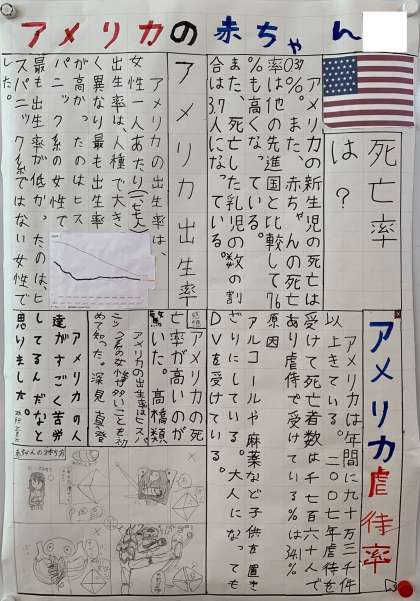 アメリカの赤ちゃん
死亡率
は？
アメリカの新生児の死亡は
0.37%。また、赤ちゃんの死亡
率は他の先進国と比較して76
%も高くなっている。
また、死亡した乳児の数の割
合は37人になっている。
アメリカ出生率
アメリカの出生率は、
女性一人あたり
出生率は、人種で大き
く異なり最も出生率
が高かったのはヒス
パニック系の女性で
最も出生率が低かったのは、ヒ
スパニック系ではない女性で
した。
アメリカ虐待率
アメリカは年間に九十万三千件
以上きている。二〇〇七年虐待を
受けて死亡者数は千七百六十人で
あり虐待で受けている%は34.1%
原因
アルコールや麻薬など子供を置き
ざりにしている。大人になっても
DVを受けている。
感想
アメリカの死
亡率が高いのが
驚いた。高橋類
アメリカの出生率はヒスパ
めて知った。深見
アメリカの人
達がすごく苦労
してるんだなと
思いました。
赤ちゃんの持ち方